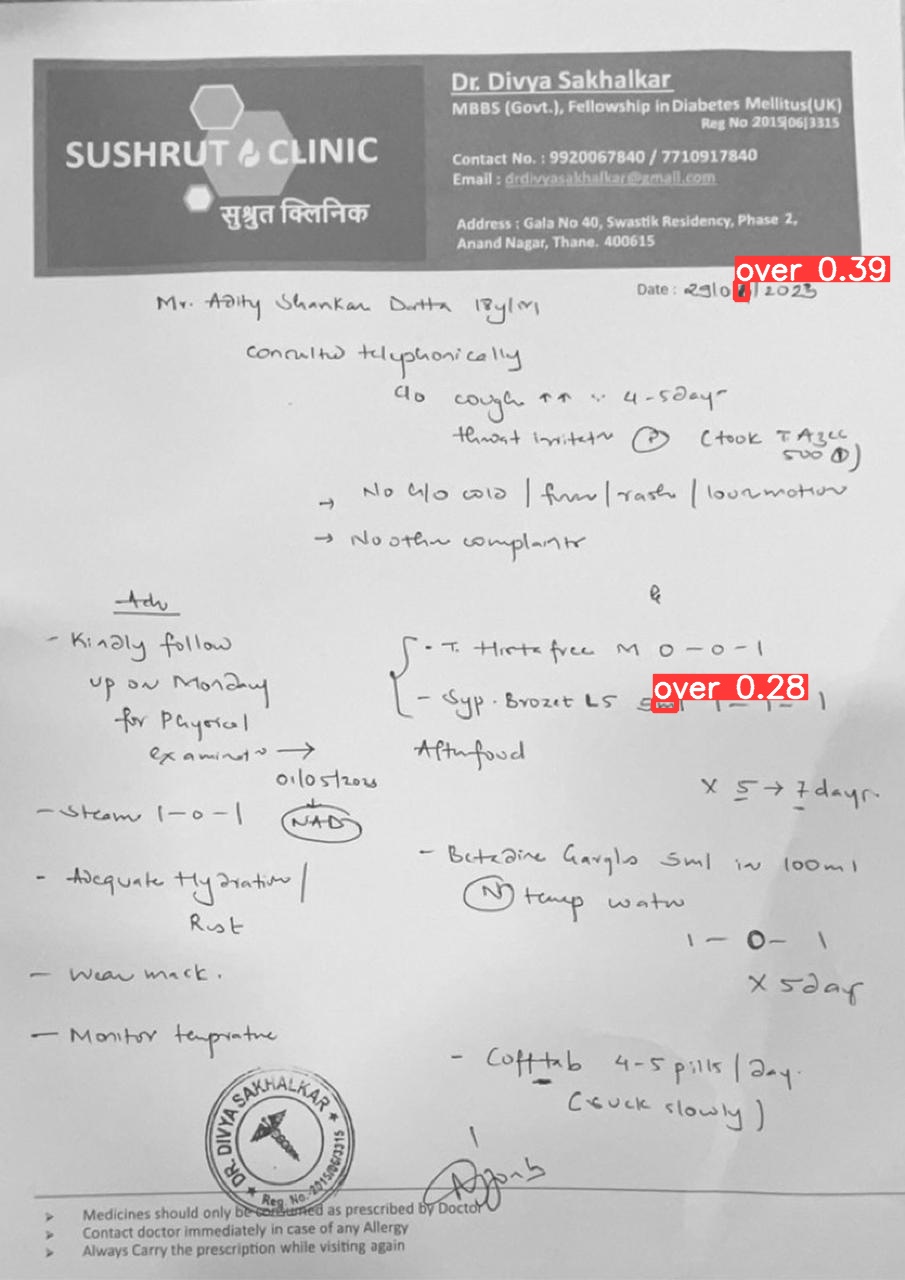 Dr. Divya Sakhalkar
MBBS (Govt.), Fellowship in Diabetes Mellitus(UK)
Reg No 2015|06|3315
SUSHRUT CLINIC
सुश्रुत क्लिनिक
Contact No. : 9920067840 / 7710917840
Email : drdivyasakhalkar@gmail.com
Address : Gala No 40, Swastik Residency, Phase 2,
Anand Nagar, Thane. 400615
over 0.39
Date : 29/0 /2023
Mr. Adity Shankar Dutta 18y/M
consulted telephonically
c/o cough ↑↑ 4-5day
throat irritatn (P) (took T Azee
500 (1))
→ No h/o cold / fever / rash / loosemotion
→ No other complaints
Adv
- Kindly follow
up on Monday
for Physical
examinatn →
01/05/2023
NAD
- Steam 1-0-1
- Adequate Hydration /
Rest
- Wear mask.
- Monitor temprature
- T. Histafree M 0-0-1
over 0.28
- Syp. Brozet LS 5ml 1-1-1
After food
x 5 → 7 days.
- Betadine Gargles 5ml in 100ml
(N) temp water
1-0-1
x 5day
- Cofftab 4-5 pills / day.
(suck slowly)
DR. DIVYA SAKHALKAR
Reg. No.-2015/06/3315
➤ Medicines should only be consumed as prescribed by Doctor
➤ Contact doctor immediately in case of any Allergy
➤ Always Carry the prescription while visiting again